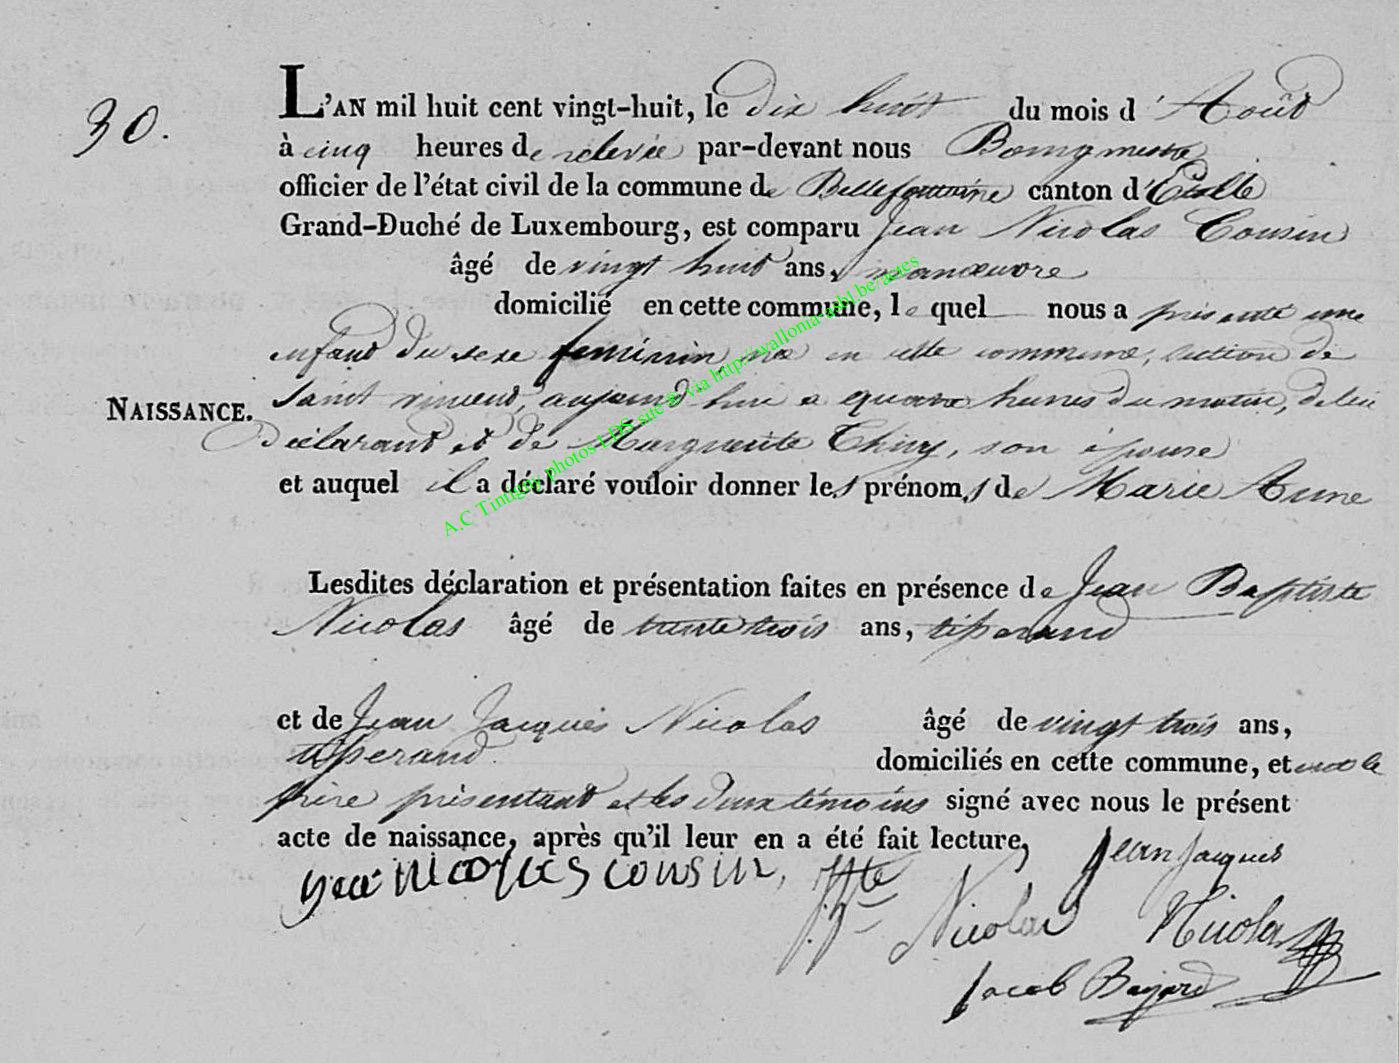 30.
L'AN mil huit cent vingt-huit, le dix huit du mois d'Août
à cinq heures de relevée par-devant nous Bourgmestre
officier de l'état civil de la commune de Bellefontaine canton d'Etalle
Grand-Duché de Luxembourg, est comparu Jean Nicolas Cousin
âgé de vingt huit ans, manœuvre
domicilié en cette commune, lequel nous a présenté une
enfant du sexe feminin, née en cette commune, section de
NAISSANCE.
Saint vincent, aujourd'hui a quatre heures du matin, de lui
déclarant et de Marguerite Thiry, son épouse
et auquel il a déclaré vouloir donner les prénoms de Marie Anne
Lesdites déclaration et présentation faites en présence de Jean Baptiste
Nicolas âgé de trente trois ans, tisserand
et de Jean Jacques Nicolas âgé de vingt trois ans,
tisserand. domiciliés en cette commune, et ont le
père présentant et les deux témoins signé avec nous le présent
acte de naissance, après qu'il leur en a été fait lecture,
Jean Jacques
cousin, J. Bte
Nicolas Nicolas
Jacob Bayard
A.C Tintigny photos LDS sur le via http://wallonia-asbl.be/actes